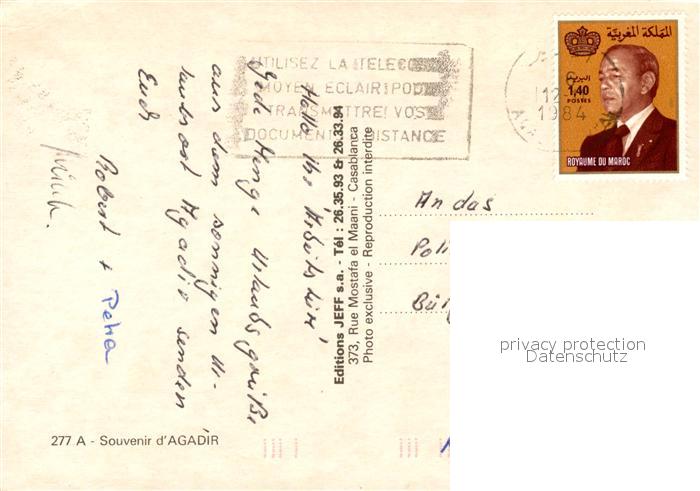 UTILISEZ LA TELECO
MOYEN ECLAIR POU
TRANSMETTRE VOS
DOCUMENT DISTANCE
المملكة المغربية
1,40
POSTES
ROYAUME DU MAROC
12
1984
Hallo Ihr
Jede Menge Urlaubsgrüße
aus dem sonnigen Ur-
laubsort Agadir senden
Euch
Robert + Petra
Editions JEFF s.a. - Tél : 26.35.93 & 26.33.94
373, Rue Mostafa el Maani - Casablanca
Photo exclusive - Reproduction interdite
An das
Poli
Bü
privacy protection
Datenschutz
277 A - Souvenir d'AGADIR